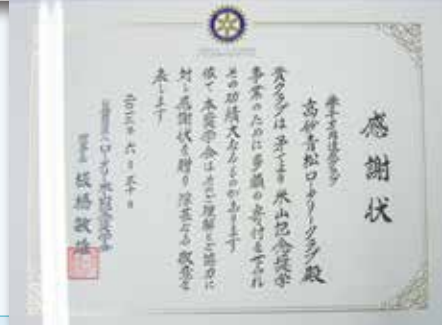 感謝状
高砂青松ロータリークラブ殿
貴クラブは予てより米山記念奨学
事業のために多額の寄付をされ
その功績大なるものがあります
依て本奨学会は此のご理解とご協力に
対し感謝状を贈り深甚なる敬意を
表します
六月三十日
ロータリー米山記念奨学会
板橋敏雄